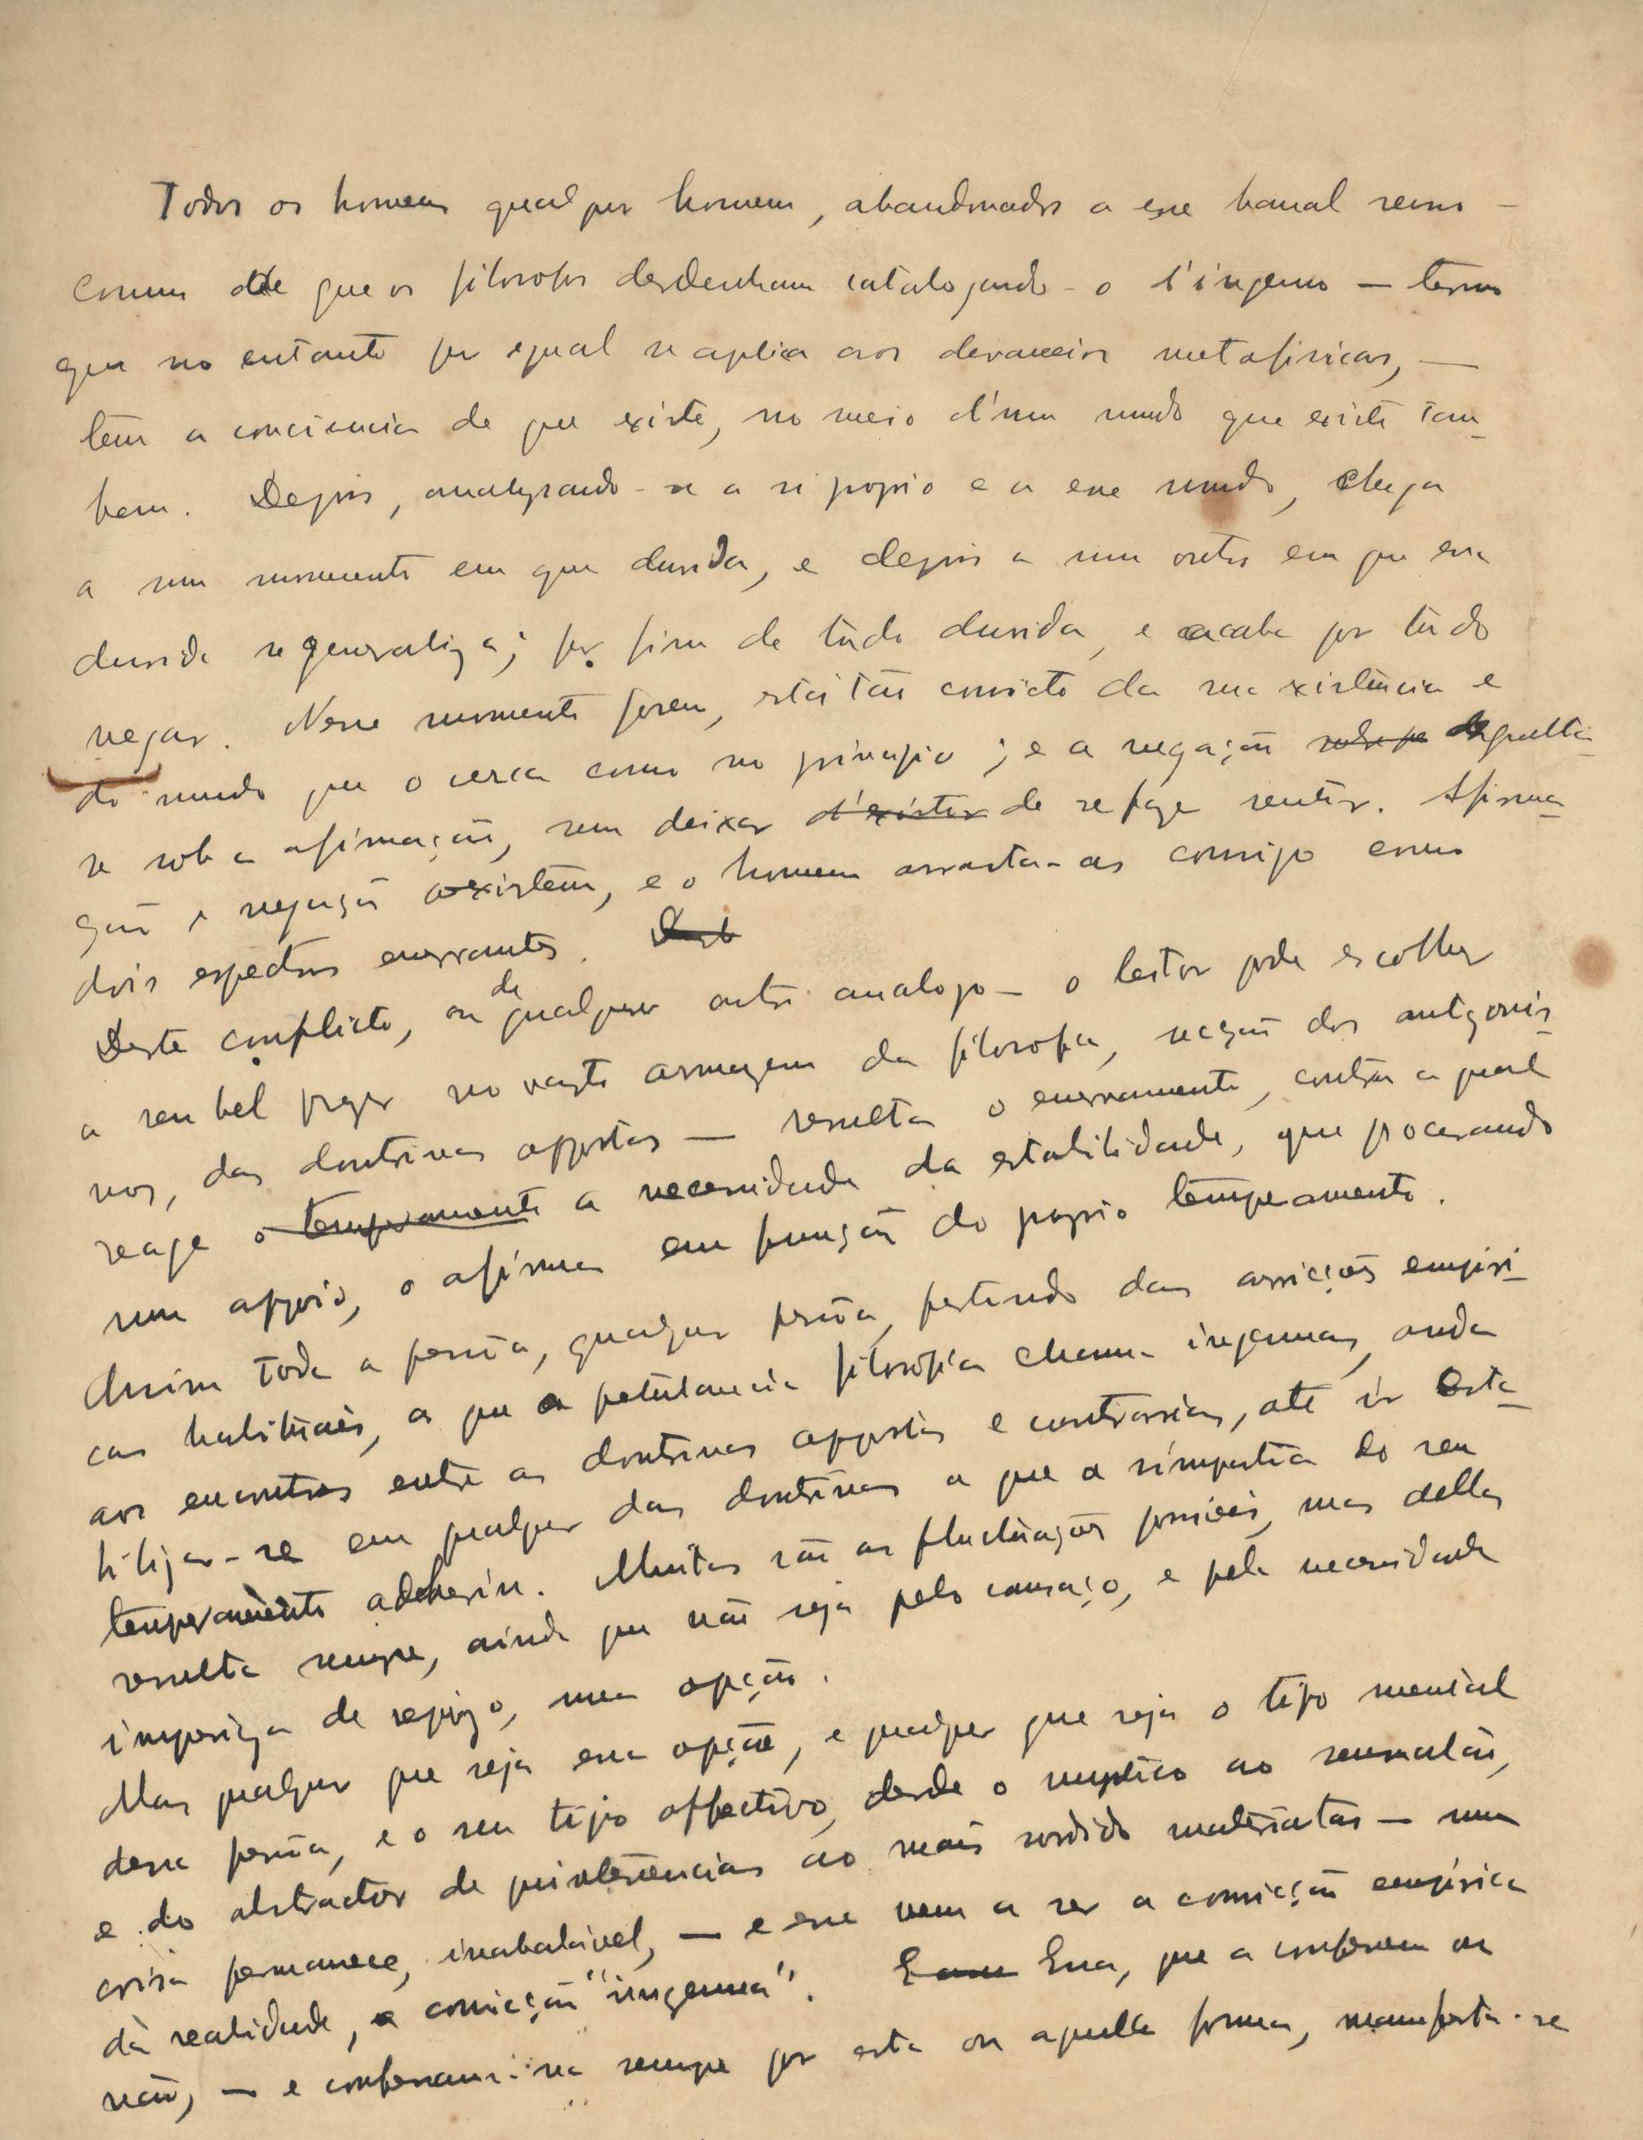 Todos os homens qualquer homem, abandonados a esse banal senso-
comum de que os filosofos desdenham catalogando-o d'ingenuo — termo
que no entanto por egual se aplica aos devaneios metafisicos, —
tem a conciencia de que existe, no meio d'um mundo que existe tam-
bem. Depois, analysando-se a si proprio e a esse mundo, chega
a um momento em que duvida, e depois a um outro em que essa
duvida se generaliza; por fim de tudo duvida, e acaba por tudo
negar. Nesse momento porem, está tão convicto da sua existencia e
do mundo que o cerca como no principio; e a negação sepulta-
se sob a afirmação, sem deixar d'existir de se fazer sentir. Afirma-
ção e negação coexistem, e o homem arrasta-as consigo como
dois espectros enervantes.
Deste conflicto, ou de qualquer outro analogo — o leitor pode escolher
a seu bel prazer no vasto armazem da filosofia, secção dos antagonis-
mos, das doutrinas oppostas — resulta o enervamento, contra a qual
reage o temperamento a necessidade da estabilidade, que procurando
um appoio, o afirma em funcção do proprio temperamento.
Assim toda a pessôa, qualquer pessôa, partindo das convicções empiri-
cas habituaes, a que a petulancia filosofica chama ingenuas, anda
aos encontros entre as doutrinas oppostas e contrarias, até ir esta-
bilizar-se em qualquer das doutrinas a que a simpatia do seu
temperamento adherin. Muitas são as fluctuações possiveis, mas dellas
resulta sempre, ainda que não seja pelo cansaço, e pela necessidade
imperiosa de repouso, uma opção.
Mas qualquer que seja essa opção, e qualquer que seja o tipo mental
dessa pessôa, e o seu tipo affectivo, desde o mystico ao sensualão,
e do abstractor de quintessencias ao mais sordido materialão — uma
coisa permanece, inabalavel, — e essa vem a ser a convicção empirica
da realidade, a convicção "ingenua". Essa, que a confessem ou
não, — e confessam-na sempre por esta ou aquella forma, manifesta-se